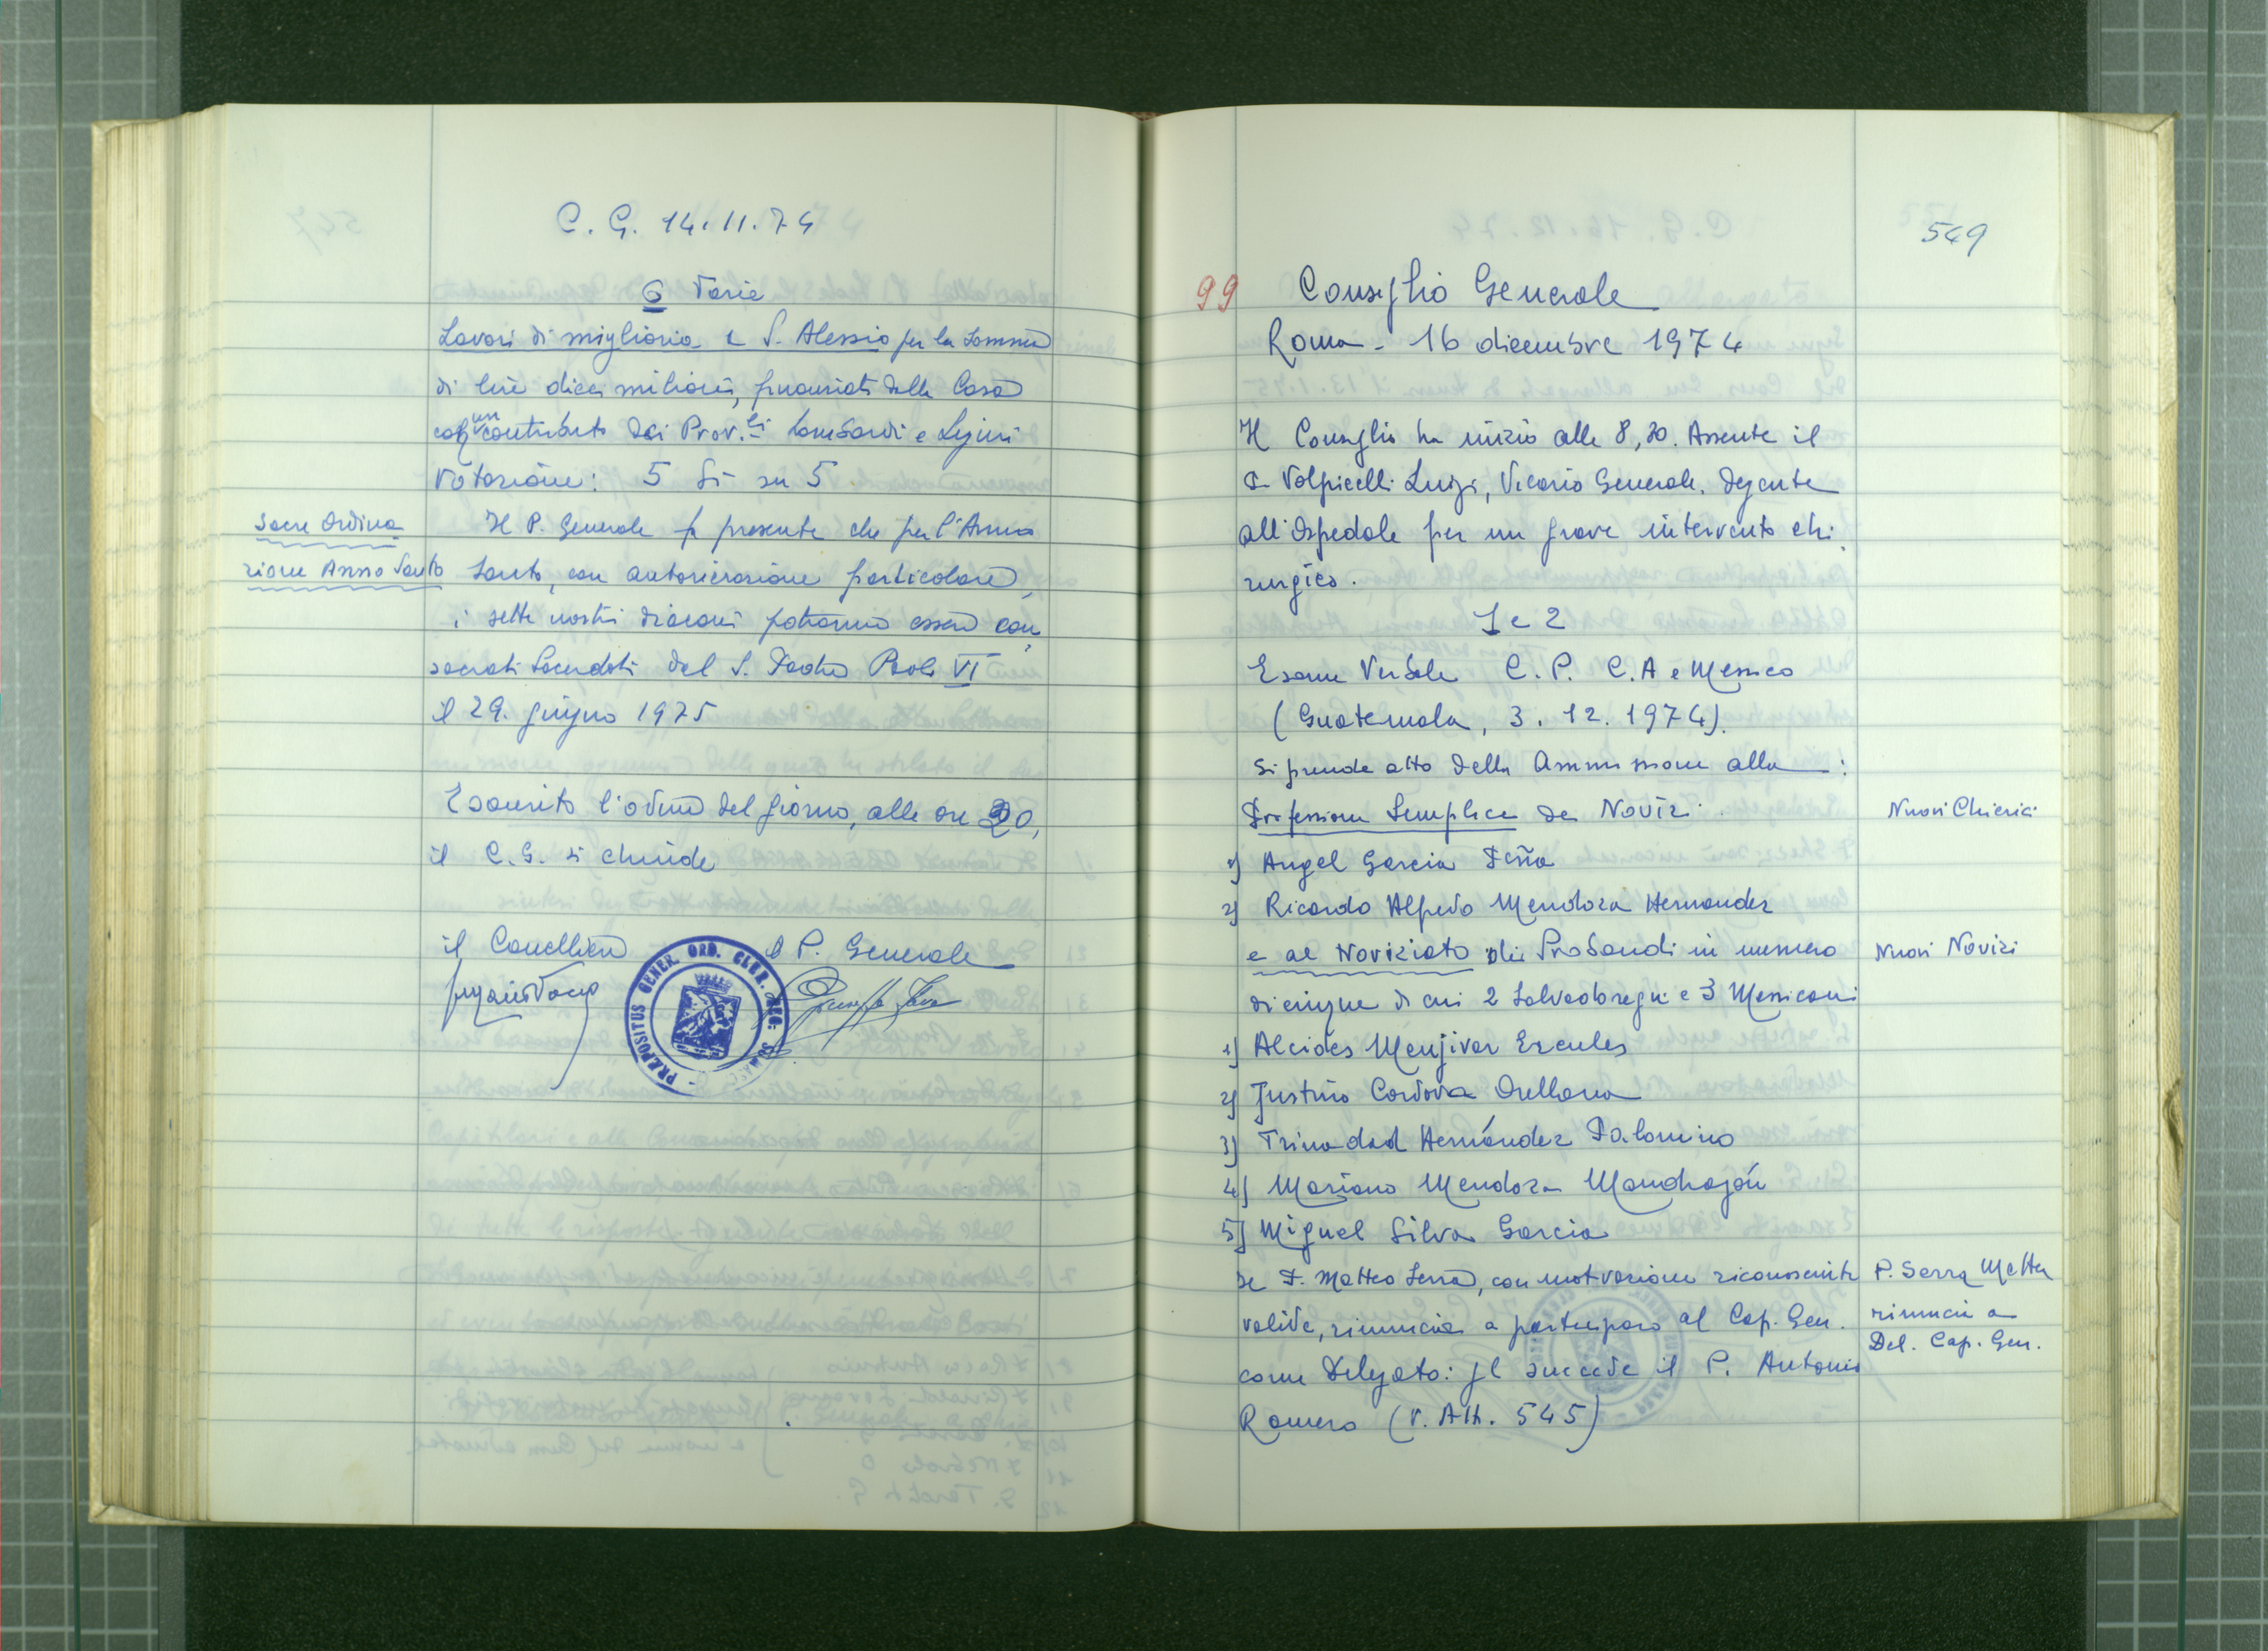 C. G. 14.11.74
6 Varie
Lavori di miglioria a S. Alessio per la somma
di lire dieci milioni, finanziati dalla Casa
con un contributo dei Prov.li Lombardi e Liguri
Votazione: 5 Sì su 5
Sacre Ordina
zioni Anno Santo
Il P. Generale fa presente che per l'Anno
Santo, con autorizzazione particolare,
i sette nostri diaconi potranno essere con
sacrati Sacerdoti dal S. Padre Paolo VI
il 29. giugno 1975
Esaurito l'ordine del giorno, alle ore 20,
il C.G. si chiude
il Cancelliere il P. Generale
PRÆPOSITUS GENER. ORD. CLER. REG. SOMASC.
549
99 Consiglio Generale
Roma - 16 dicembre 1974
Il Consiglio ha inizio alle 8,30. Assente il
P. Volpicelli Luigi, Vicario Generale, degente
all'Ospedale per un grave intervento chi
rurgico.
1 e 2
Esame Verbale C. P. C.A e Messico
(Guatemala, 3. 12. 1974).
Si prende atto della Ammissione alla :
Professione Semplice dei Novizi
Nuovi Chierici
1) Angel Garcia Peña
2) Ricardo Alfredo Mendoza Hernandez
e al Noviziato dei Probandi in numero
Nuovi Novizi
di cinque di cui 2 Salvadoregni e 3 Messicani
1) Alcides Menjivar Ercules
2) Justino Cordova Orellana
3) Trinidad Hernández Palomino
4) Mariano Mendoza Mondragón
5) Miguel Silva Garcia
Se P. Matteo Serra, con motivazione riconosciuta
P. Serra Matteo
valida, rinuncia a partecipare al Cap. Gen.
rinuncia a
Del. Cap. Gen.
come Delegato: gli succede il P. Antonio
Romero (V. Att. 545)